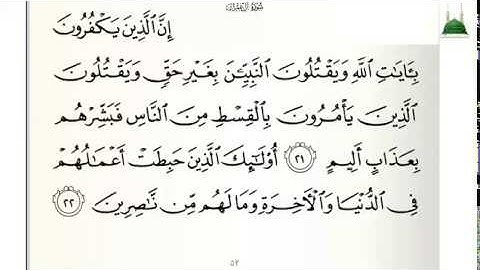 سورة آل عمران
إِنَّ ٱلَّذِينَ يَكْفُرُونَ
بِـَٔايَٰتِ ٱللَّهِ وَيَقْتُلُونَ ٱلنَّبِيِّـۧنَ بِغَيْرِ حَقٍّ وَيَقْتُلُونَ
ٱلَّذِينَ يَأْمُرُونَ بِٱلْقِسْطِ مِنَ ٱلنَّاسِ فَبَشِّرْهُم
بِعَذَابٍ أَلِيمٍ ٢١ أُو۟لَٰٓئِكَ ٱلَّذِينَ حَبِطَتْ أَعْمَٰلُهُمْ
فِى ٱلدُّنْيَا وَٱلْـَٔاخِرَةِ وَمَا لَهُم مِّن نَّٰصِرِينَ ٢٢
٥٢